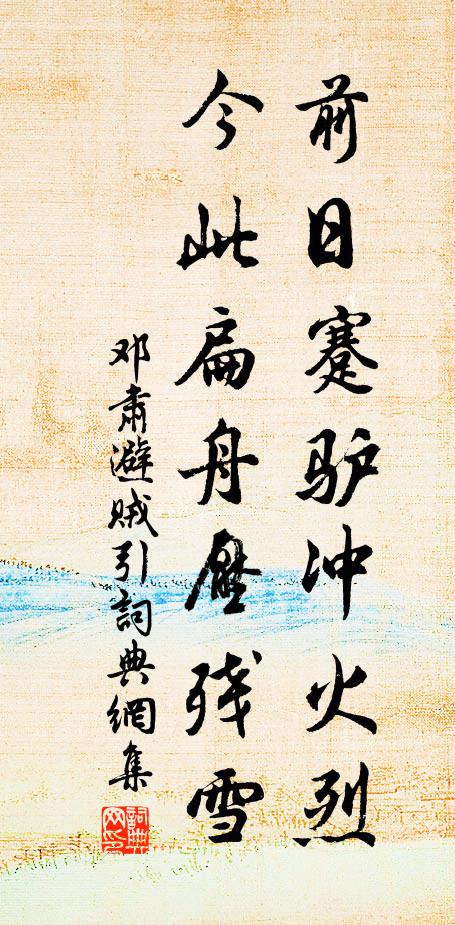 前日蹇驴冲火烈
今此扁舟壓残雪
邓肃避贼引詞典網集
詞典网印